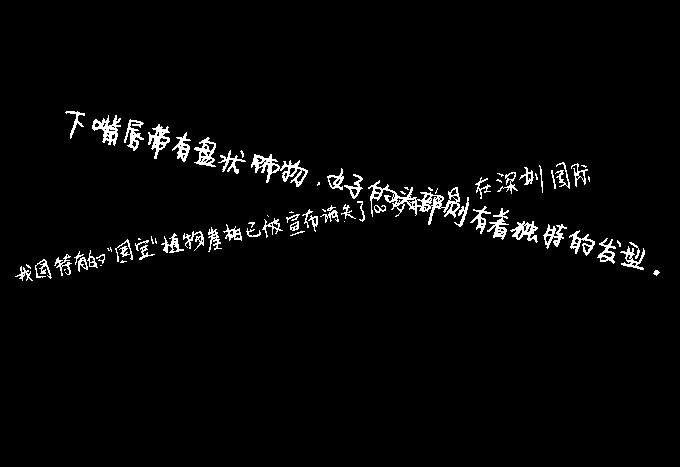 下嘴唇带有盘状饰物,女子的头部则有着独特的发型.
我国特有的"国宝"植物崖柏已被宣布消失了100多年 在深圳国际